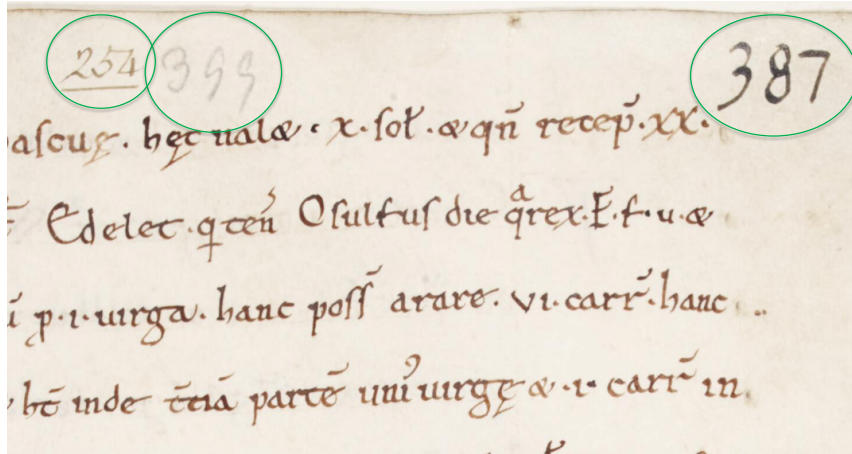 254 399 387
ascuę . hęc ualæ · x · sol̃ · & qñ recep̃ · xx ·
Edelet · q teñ Osulfus die qͣ rex · E · f · u · &
p̱ · i · uirga · hanc poss̃ arare · vi · carr̃ · hanc
ht̄ inde t̄ciā partē uni᾽ uirgę & · i · carr̃ in